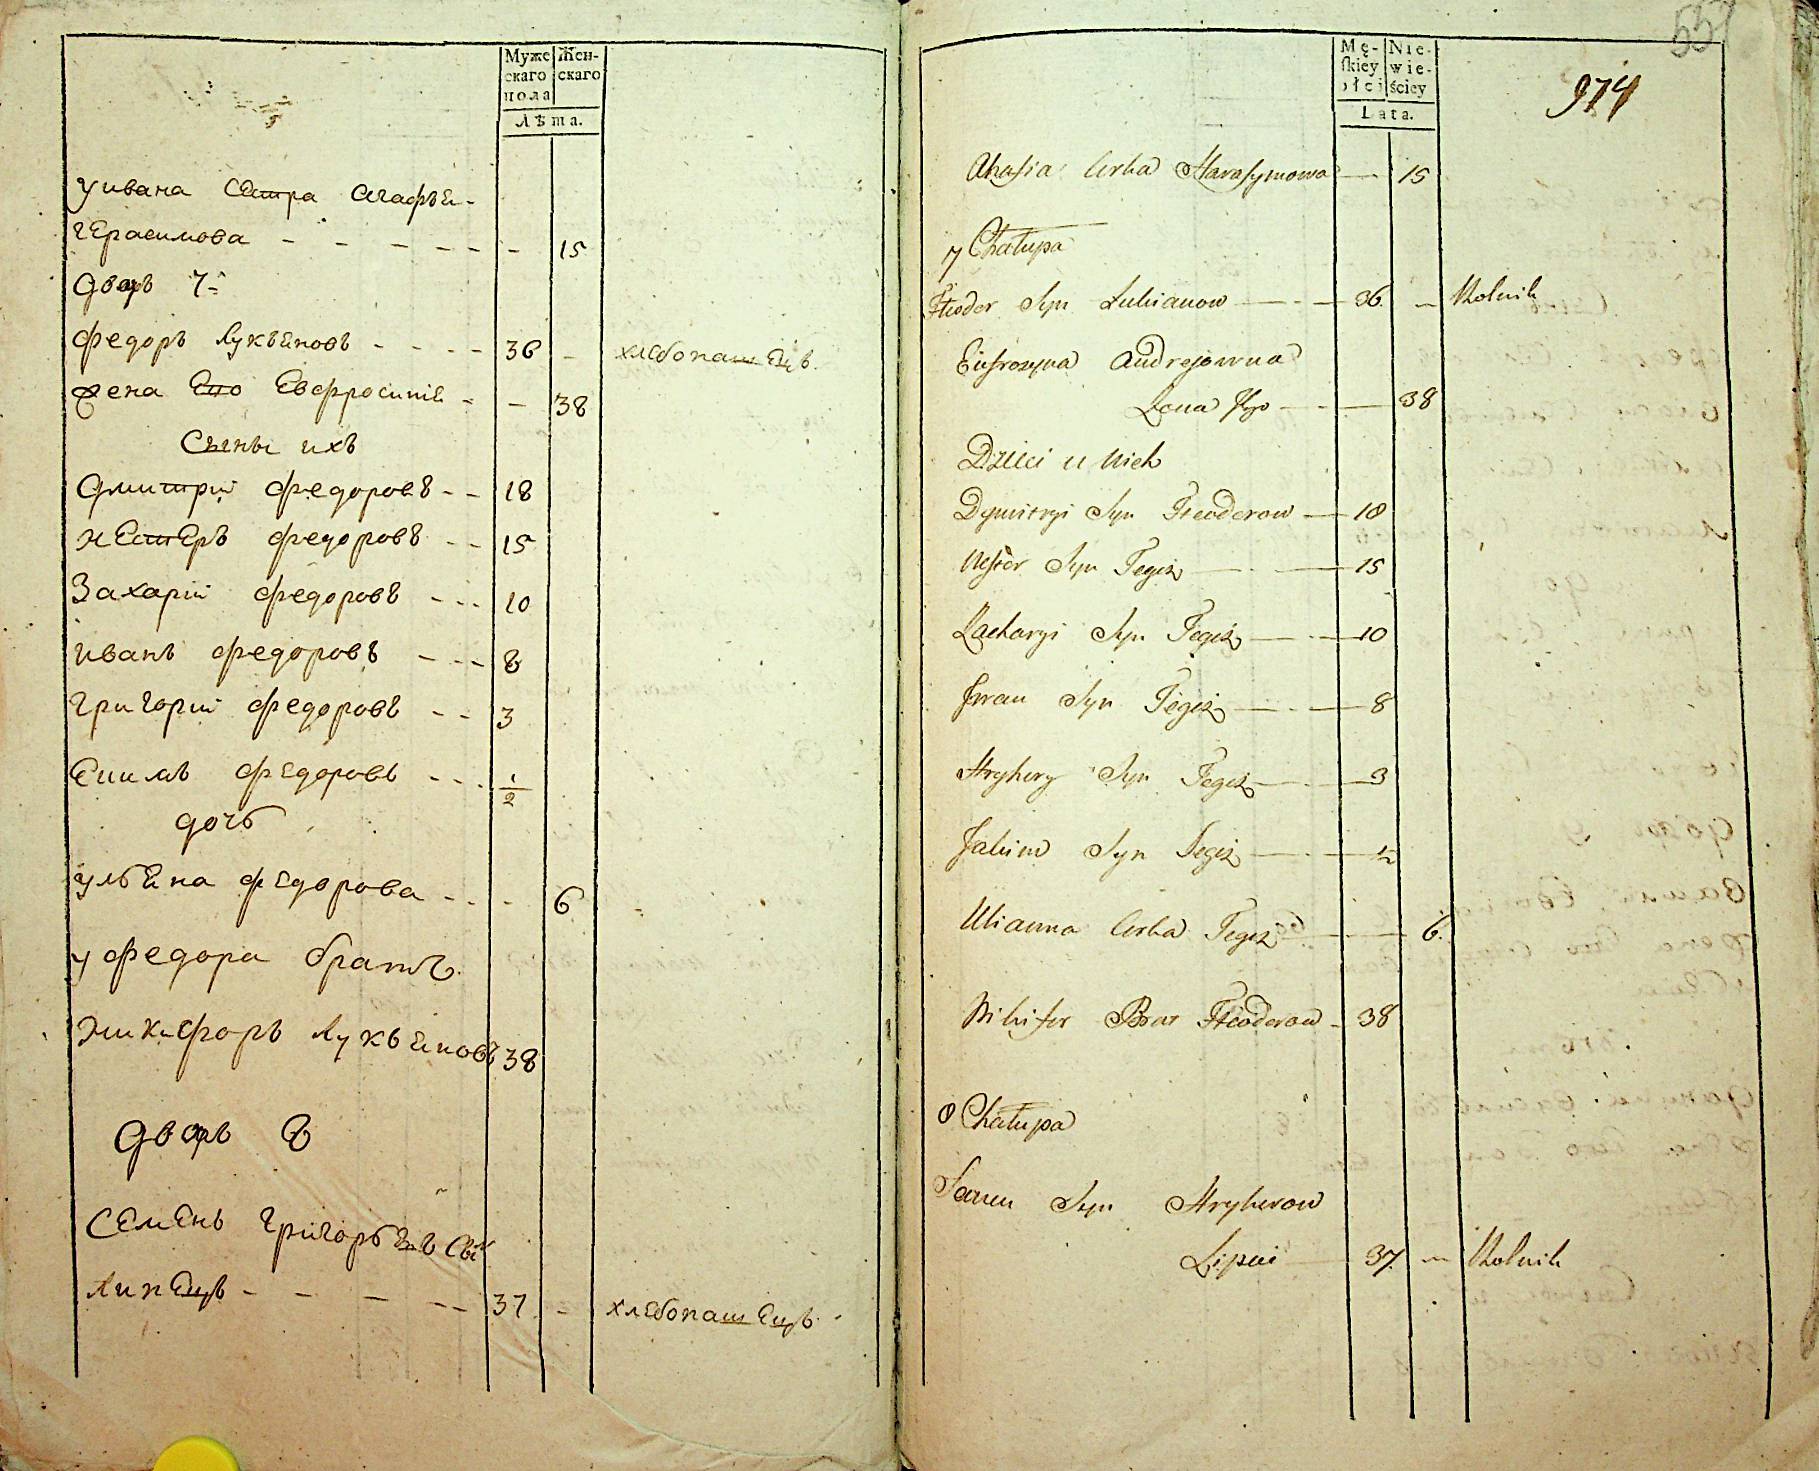 Муже
скаго
пола
Жен-
скаго
Лѣта.
у ивана сестра агафья
герасимова - - - - - - 15
дворъ 7-
федоръ лукъяновъ - - - - 36 - хлебопашецъ.
жена ево евфросинія - - 38
сыны ихъ
дмитрий федоровъ - - 18
нестеръ федоровъ - - 15
Захарий федоровъ - - - 10
иванъ федоровъ - - - 8
григорий федоровъ - - 3
федоровъ - - - 1/2
дочь
ульяна федорова - - - 6
у федора братъ
никифоръ лукьяновъ 38
дворъ 8
семенъ григорьевъ сынъ
липецъ - - - - - 37 - хлебопашецъ.
557
Mę-
skiey
płci
Nie-
wie-
ściey
Lata.
974
Ahafia Corka Harasymowa — 15
7 Chałupa
Fteodor Syn Lukianow — 36 — Rolnik
Eufrozyna Andrejowna
Żona Jego — 38
Dzieci u Nich
Dymitryi Syn Fteodorow — 18
Nestor Syn Tegoż — 15
Zacharyi Syn Tegoż — 10
Jwan Syn Tegoż — 8
Hryhory Syn Tegoż — 3
Jakim Syn Tegoż — 1/2
Ulianna Corka Tegoż — 6.
Nikifor Brat Fteodorow - 38
8 Chałupa
Semen Syn Hryhorow
Lipiei — 37. — Rolnik